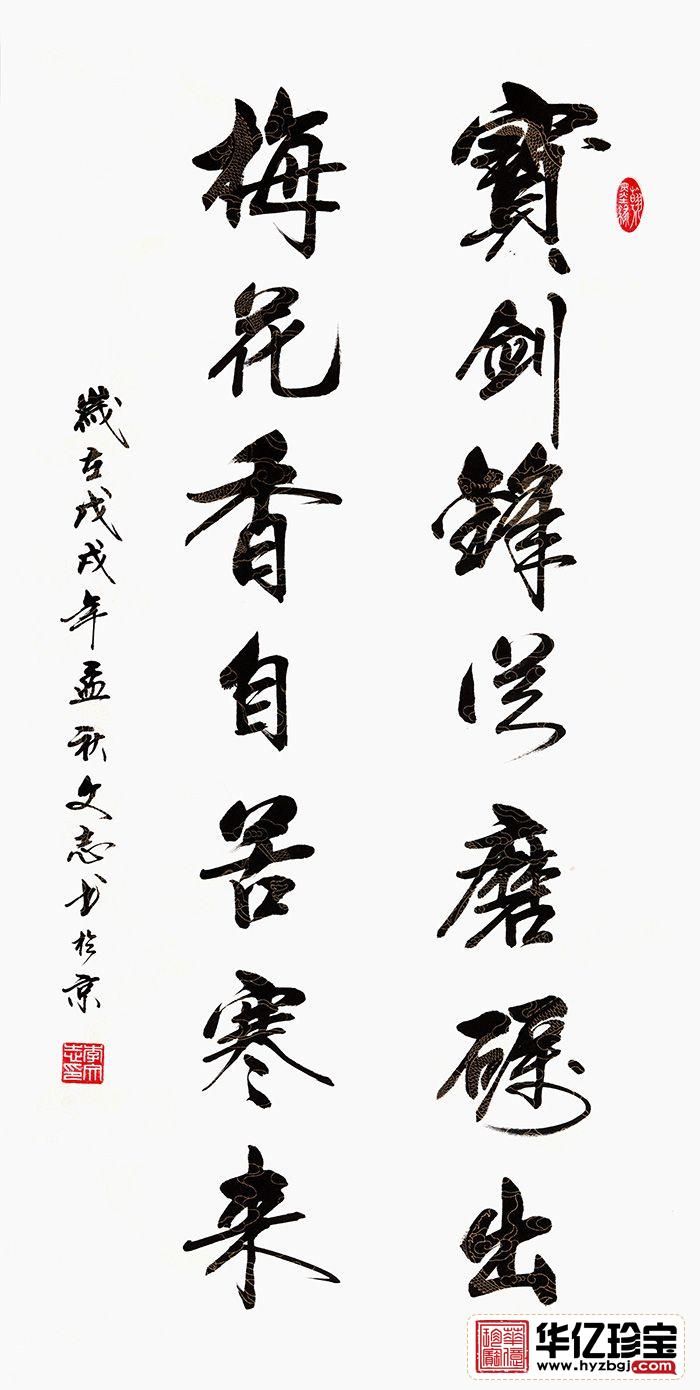 寳劍鋒從磨礪出
梅花香自苦寒来
歲在戊戌年孟秋文志书於京
李文志印
华亿珍宝
www.hyzbgj.com